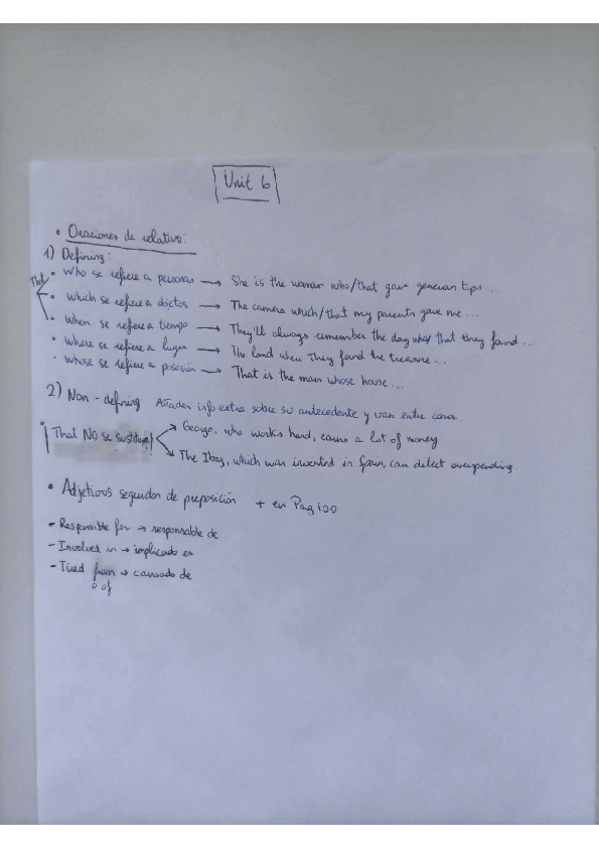 Unit 6
• Oraciones de relativo:
1) Defining:
That
• Who se refiere a personas → She is the woman who/that gave generous tips...
• which se refiere a objetos → The camera which/that my parents gave me...
• When se refiere a tiempo → They'll always remember the day that they found...
• Where se refiere a lugar → The land when they found the treasure...
• Whose se refiere a posesión → That is the man whose house...
2) Non-defining Añaden info extra sobre su antecedente y van entre coma.
¡That NO se sustituye! → George, who works hard, earns a lot of money
→ The Ibag, which was invented in Spain, can detect overspending.
• Adjetivos seguidos de preposición + en Pag 100
- Responsible for → responsable de
- Involves in → implicado en
- Tired from → cansado de
o of